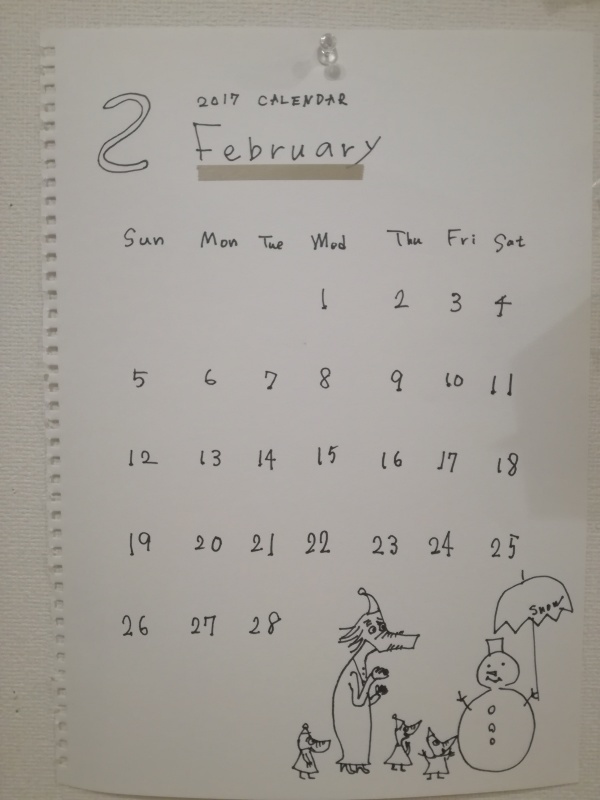 2017 CALENDAR
2 February
Sun Mon Tue Wed Thu Fri Sat
1 2 3 4
5 6 7 8 9 10 11
12 13 14 15 16 17 18
19 20 21 22 23 24 25
26 27 28
Snow